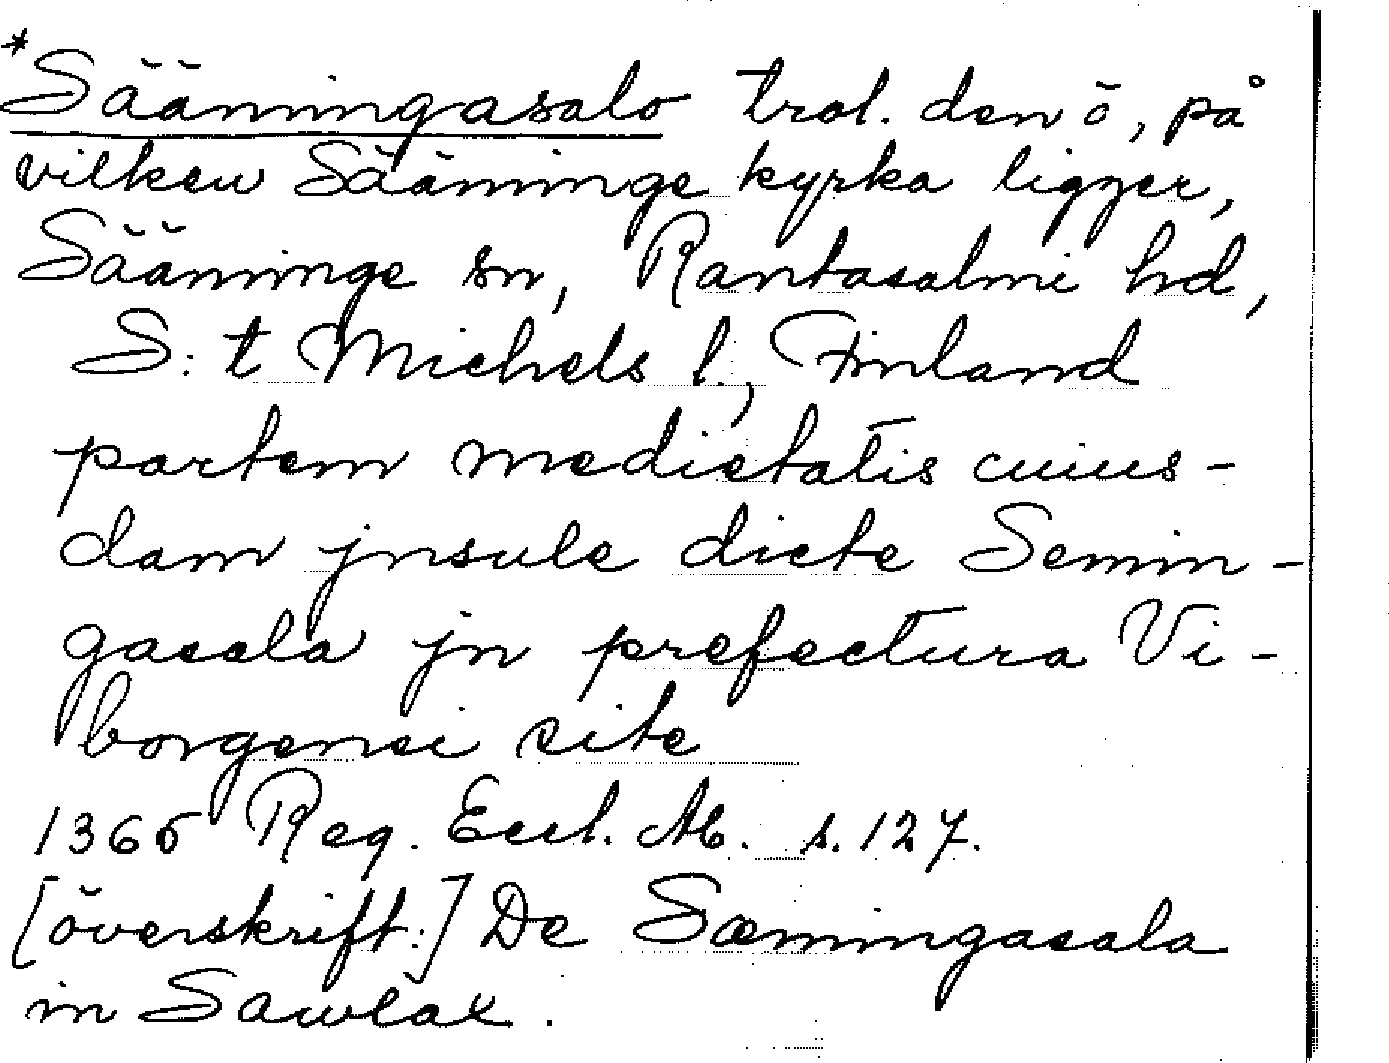 *Sääningasalo trol. den ö, på
vilken Sääminge kyrka ligger,
Sääminge sn, Rantasalmi hd,
S:t Michels l., Finland
partem medietatis cuius-
dam jnsule dicte Semin-
gasala jn prefectura Vi-
borgensi site
1366 Reg. Eccl. Ab. s. 127.
[överskrift:] De Sæmingasala
in Sawlax.